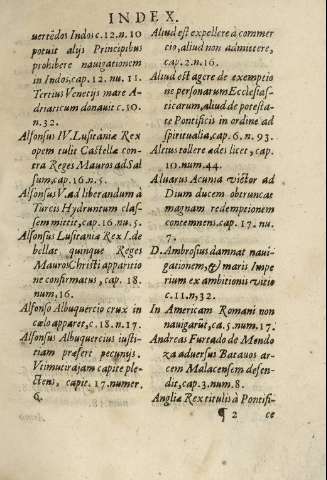 INDEX.
uertẽdos Indos c.12.n.10
potuit alijs Principibus
prohibere nauigationem
in Indos, cap. 12. nu. 11.
Tertius Venetijs mare A-
driaticum donauit c.10.
n.32.
Alfonsus IV. Lusitaniæ Rex
opem tulit Castellæ con-
tra Reges Mauros ad Sal
sum, cap. 16. n. 5.
Alfonsus V. ad liberandum à
Turcis Hydruntum clas-
sem mittit, cap. 16. nu. 5.
Alfonsus Lusitaniæ Rex I. de
bellat quinque Reges
Mauros Christi apparitio
ne confirmatus, cap. 18.
num, 16.
Alfonso Albuquercio crux in
cælo apparet, c. 18. n. 17.
Alfonsus Albuquercius iusti-
tiam præfert pecunijs.
Vtimutirajam capite ple-
ctens, capit. 17. numer.
6.
Aliud est expellere à commer
cio, aliud non admittere,
cap. 2. n. 16.
Aliud est agere de exemptio
ne personarum Ecclesias-
ticarum, aliud de potesta-
te Pontificis in ordine ad
spiritualia, cap. 6. n. 93.
Altius tollere ædes licet, cap.
10. num. 44.
Aluarus Acunia victor ad
Dium ducem obtruncat
magnam redemptionem
contemnens. cap. 17. nu.
7.
D. Ambrosius damnat naui-
gationem, & maris Impe
rium ex ambitionis vitio
c. 11. n, 32.
In Americam Romani non
nauigarũt, ca. 5. num. 17.
Andreas Furtado de Mendo
za aduersus Batauos ar-
cem Malacensem defen-
dit, cap. 3. num. 8.
Angliæ Rex titulis à Pontifi-
¶ 2 ce